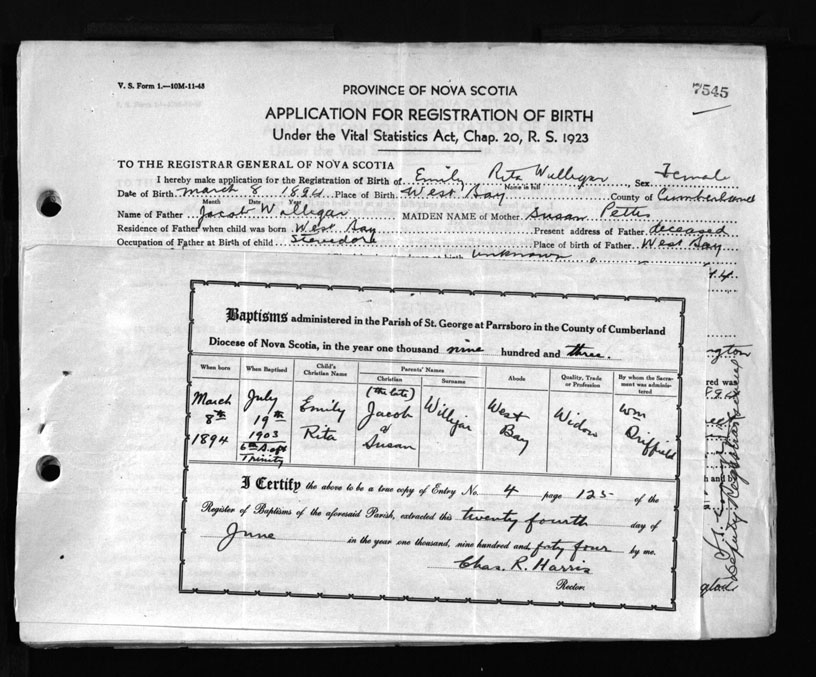 V. S. Form 1.—10M-11-43
7545
PROVINCE OF NOVA SCOTIA
APPLICATION FOR REGISTRATION OF BIRTH
Under the Vital Statistics Act, Chap. 20, R. S. 1923
TO THE REGISTRAR GENERAL OF NOVA SCOTIA
I hereby make application for the Registration of Birth of Emily Rita Willigar, Sex Female
Name in full
Date of Birth March 8 1894 Place of Birth West Bay County of Cumberland
Month Date Year
Name of Father Jacob Willigar MAIDEN NAME of Mother Susan Pettis
Residence of Father when child was born West Bay Present address of Father deceased
Occupation of Father at Birth of child Stevedore Place of birth of Father West Bay
unknown
Baptisms administered in the Parish of St. George at Parrsboro in the County of Cumberland
Diocese of Nova Scotia, in the year one thousand nine hundred and three.
When born When Baptised Child's Christian Name Parents' Names Christian Surname Abode Quality, Trade or Profession By whom the Sacrament was administered
March 8th 1894 July 19th 1903 6th S. aft Trinity Emily Rita (the late) Jacob & Susan Willigar West Bay Widow Wm Driffield
I Certify the above to be a true copy of Entry No. 4 page 125 of the
Register of Baptisms of the aforesaid Parish, extracted this twenty fourth day of
June in the year one thousand, nine hundred and forty four by me.
Chas. R. Harris
Rector.
Deputy Registrar